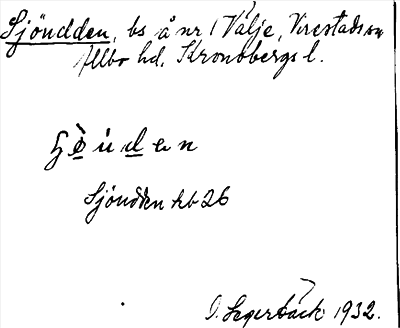 Sjöudden, bs å nr 1 Välje, Virestads sn
Allbo hd, Kronobergs l.
Sjöudden kb 26
J. Segerbäck 1932.